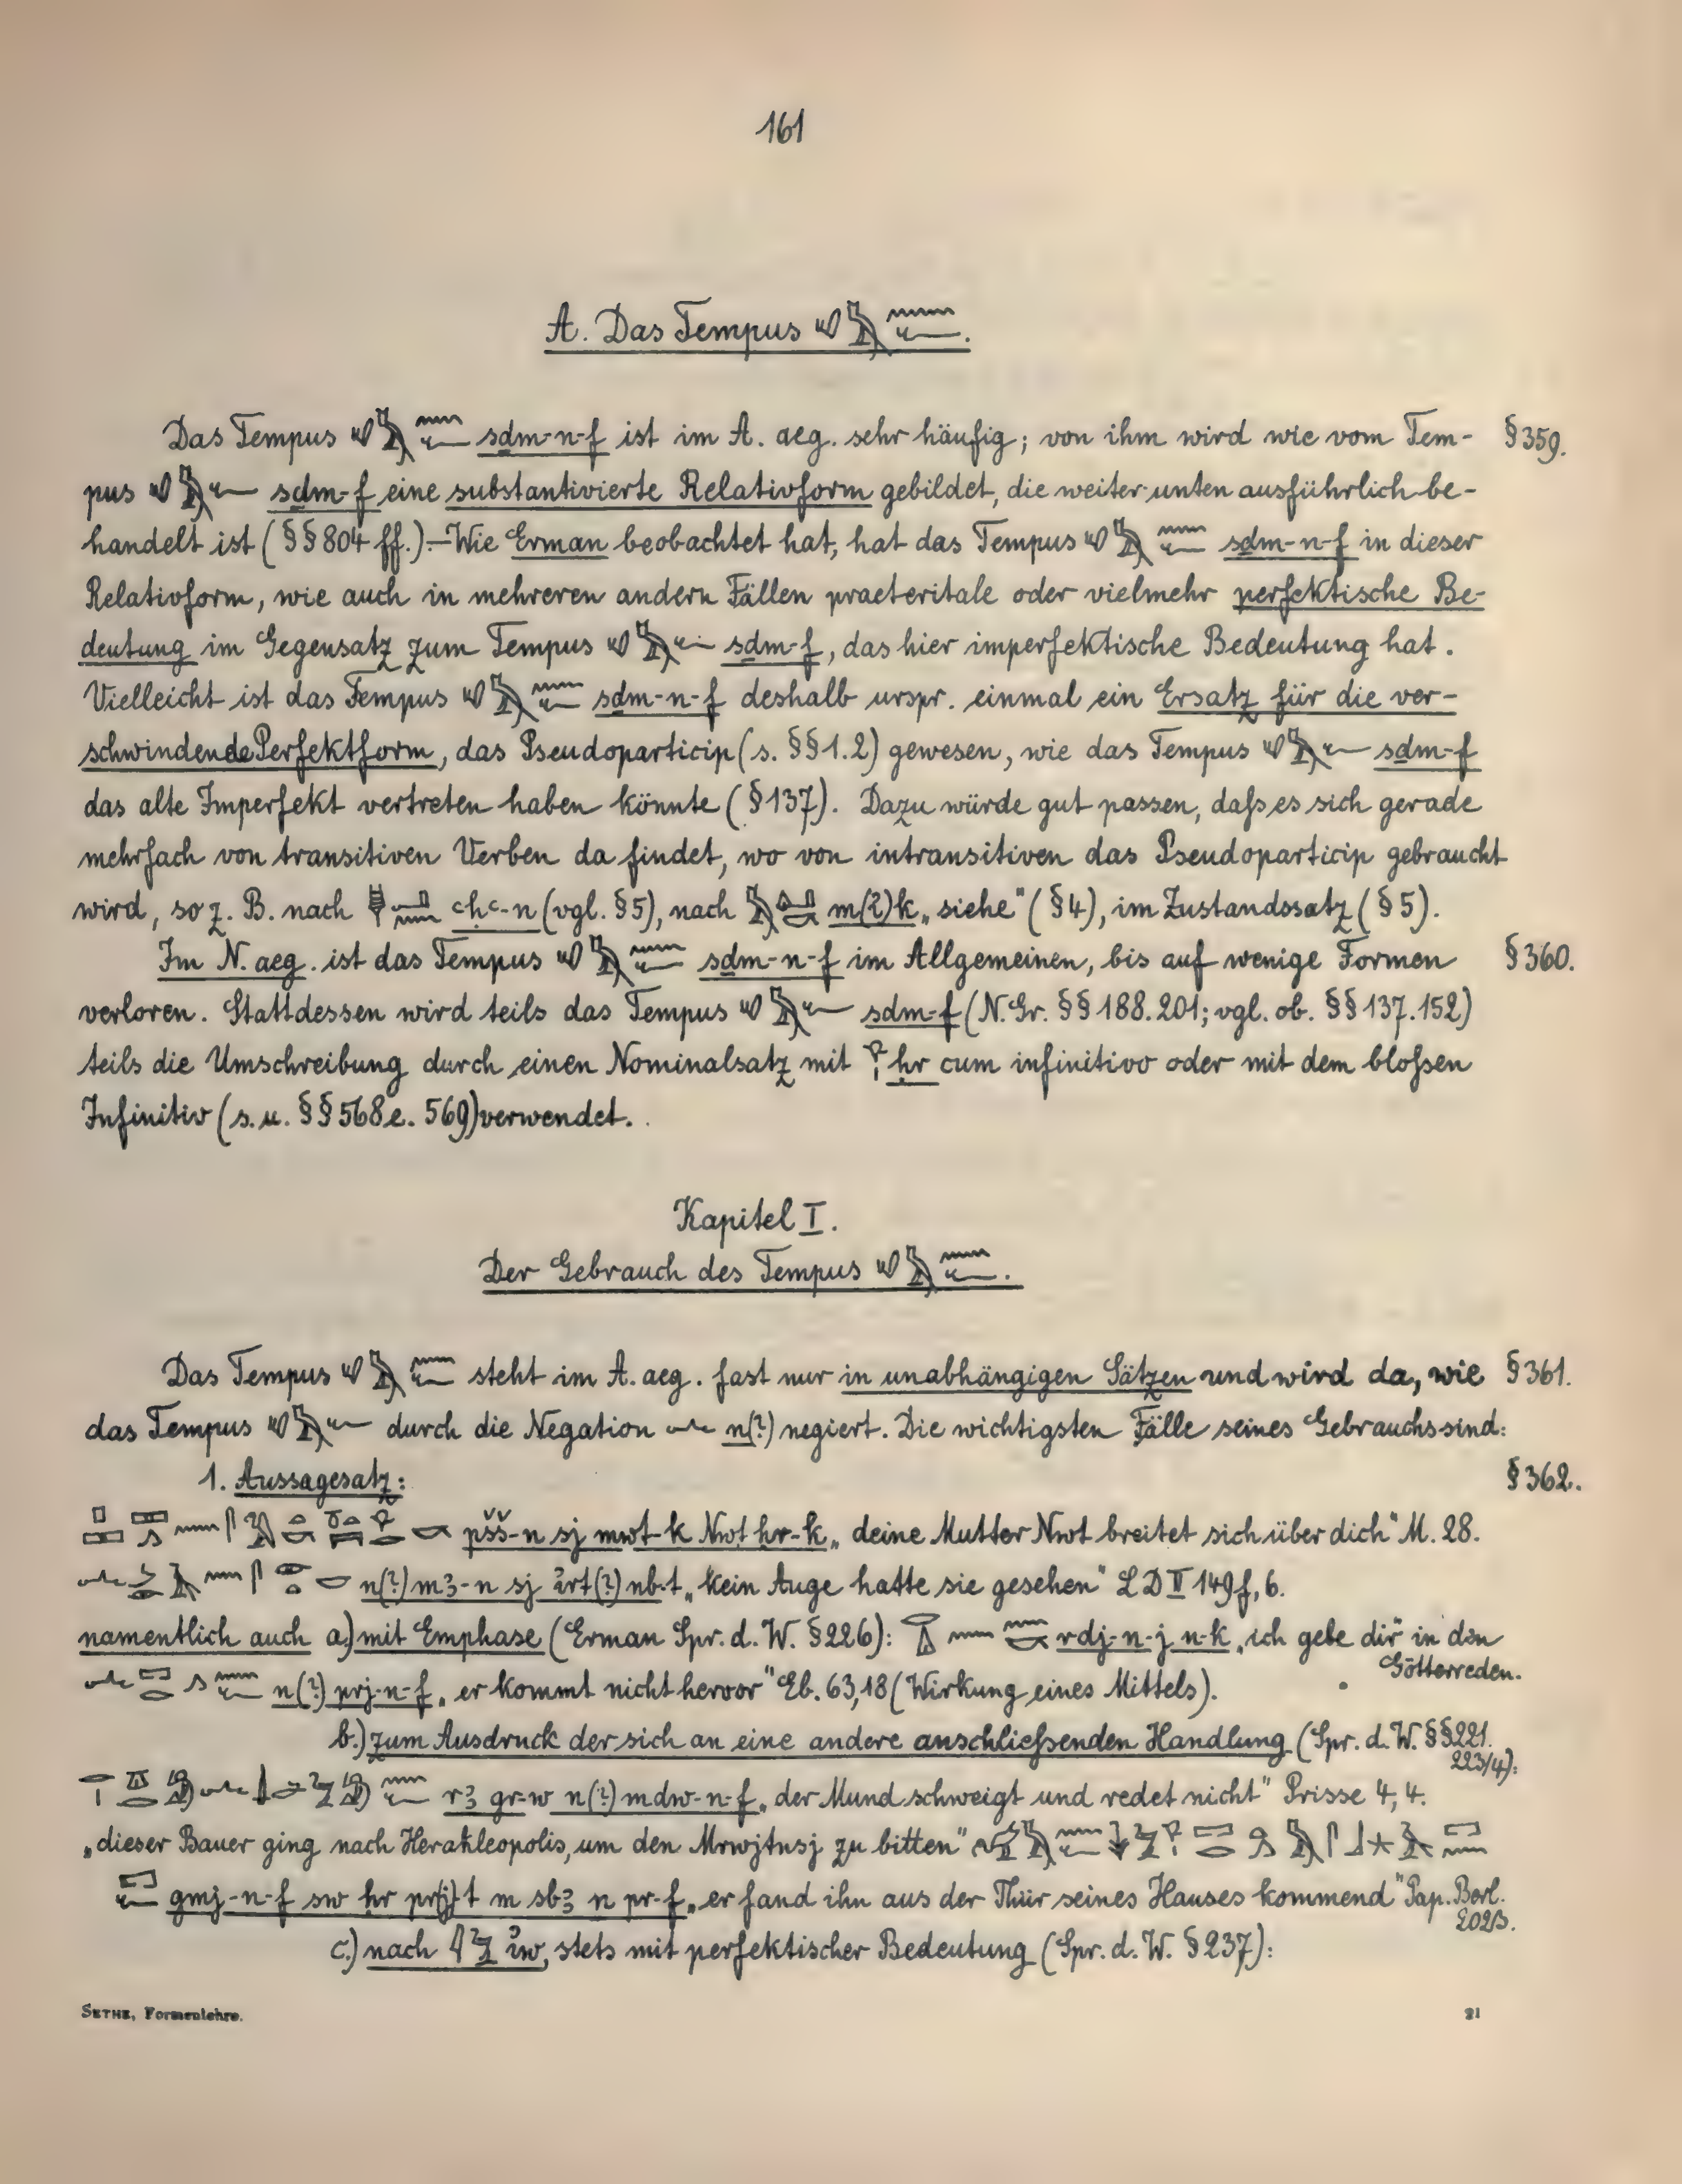 161
A. Das Tempus 𓄔𓅓𓈖𓆑.
Das Tempus 𓄔𓅓𓈖𓆑 sdm-n-f ist im A. aeg. sehr häufig; von ihm wird wie vom Tem- § 359.
pus 𓄔𓅓𓆑 sdm-f eine substantivierte Relativform gebildet, die weiter unten ausführlich be-
handelt ist (§§ 804 ff.) – Wie Erman beobachtet hat, hat das Tempus 𓄔𓅓𓈖𓆑 sdm-n-f in dieser
Relativform, wie auch in mehreren andern Fällen praeteritale oder vielmehr perfektische Be-
deutung im Gegensatz zum Tempus 𓄔𓅓𓆑 sdm-f, das hier imperfektische Bedeutung hat.
Vielleicht ist das Tempus 𓄔𓅓𓈖𓆑 sdm-n-f deshalb urspr. einmal ein Ersatz für die ver-
schwindende Perfektform, das Pseudoparticip (s. §§ 1.2) gewesen, wie das Tempus 𓄔𓅓𓆑 sdm-f
das alte Imperfekt vertreten haben könnte (§ 137). Dazu würde gut passen, daſs es sich gerade
mehrfach von transitiven Verben da findet, wo von intransitiven das Pseudoparticip gebraucht
wird, so z. B. nach ꜥḥꜥ-n (vgl. § 5), nach m(?)k „siehe" (§ 4), im Zustandssatz (§ 5).
Im N. aeg. ist das Tempus 𓄔𓅓𓈖𓆑 sdm-n-f im Allgemeinen, bis auf wenige Formen § 360.
verloren. Stattdessen wird teils das Tempus 𓄔𓅓𓆑 sdm-f (N. Gr. §§ 188. 201; vgl. ob. §§ 137. 152)
teils die Umschreibung durch einen Nominalsatz mit 𓁷𓏤 ḥr cum infinitivo oder mit dem bloſsen
Infinitiv (s. u. §§ 568e. 569) verwendet.
Kapitel I.
Der Gebrauch des Tempus 𓄔𓅓𓈖𓆑.
Das Tempus 𓄔𓅓𓈖𓆑 steht im A. aeg. fast nur in unabhängigen Sätzen und wird da, wie § 361.
das Tempus 𓄔𓅓𓆑 durch die Negation 𓂜 n(?) negiert. Die wichtigsten Fälle seines Gebrauchs sind:
1. Aussagesatz: § 362.
pšš-n sj mwt-k Nwt ḥr-k „deine Mutter Nwt breitet sich über dich" M. 28.
n(?) mꜣ-n sj ỉrt(?) nb-t „kein Auge hatte sie gesehen" LD II 149f, 6.
namentlich auch a.) mit Emphase (Erman Spr. d. W. § 226): rdj-n-j n-k „ich gebe dir" in den
Götterreden.
n(?) prj-n-f „er kommt nicht hervor" Eb. 63,18 (Wirkung eines Mittels).
b.) zum Ausdruck der sich an eine andere anschlieſsenden Handlung (Spr. d. W. §§ 221.
223/4):
rꜣ gr-w n(?) mdw-n-f „der Mund schweigt und redet nicht" Prisse 4, 4.
„dieser Bauer ging nach Herakleopolis, um den Mrwjtnsj zu bitten"
gmj-n-f sw ḥr pr(j)t m sbꜣ n pr-f „er fand ihn aus der Thür seines Hauses kommend" Pap. Berl.
c.) nach 𓇋𓅱 ỉw, stets mit perfektischer Bedeutung (Spr. d. W. § 237):
SETHE, Formenlehre. 21